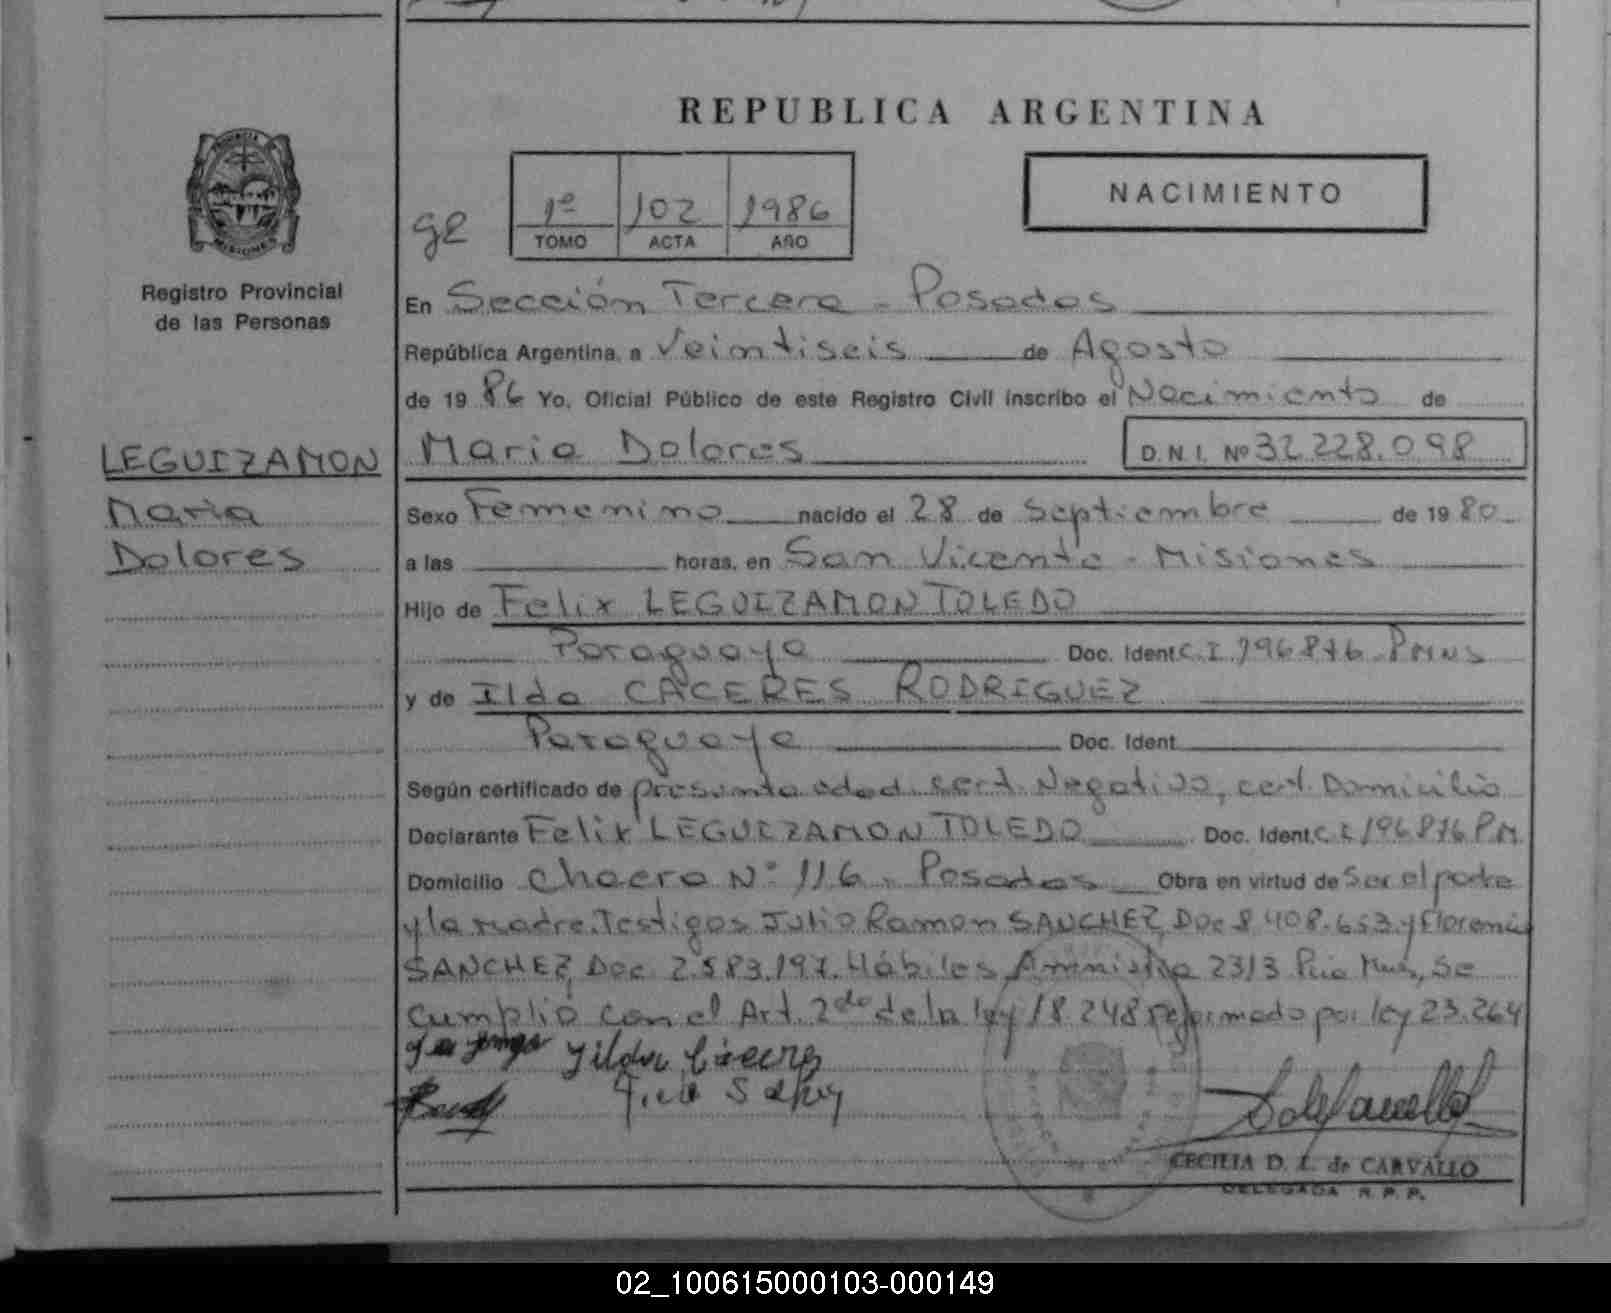 REPUBLICA ARGENTINA
PROVINCIA
MISIONES
Registro Provincial
de las Personas
g2
1º 102 1986
TOMO ACTA AÑO
NACIMIENTO
En Sección Tercera - Posadas
República Argentina, a Veintiseis de Agosto
de 19 86 Yo, Oficial Público de este Registro Civil inscribo el Nacimiento de
Maria Dolores D.N.I. Nº 32.228.098
LEGUIZAMON
Maria
Dolores
Sexo Femenino nacido el 28 de Septiembre de 19 80
a las horas, en San Vicente - Misiones
Hijo de Felix LEGUIZAMON TOLEDO
Paraguaya Doc. Ident C.I. 196876 - PMNS
y de Ilda CACERES RODRIGUEZ
Paraguaya Doc. Ident
Según certificado de presunta edad cert. Negativo, cert. Domicilio
Declarante Felix LEGUIZAMON TOLEDO Doc. Ident. C.I 196876 PM.
Domicilio Chacra Nº 116 - Posadas Obra en virtud de Ser el padre
y la madre. Testigos Julio Ramon SANCHEZ, Doc 8 408.653 y Florencia
SANCHEZ, Doc. 2.583.197. Hábiles 2313 Mns, Se
cumplió con el Art. 2do de la ley 18.248 reformado por ley 23.264
CECILIA D. L. de CARVALLO
DELEGADA R.P.P.
02_100615000103-000149